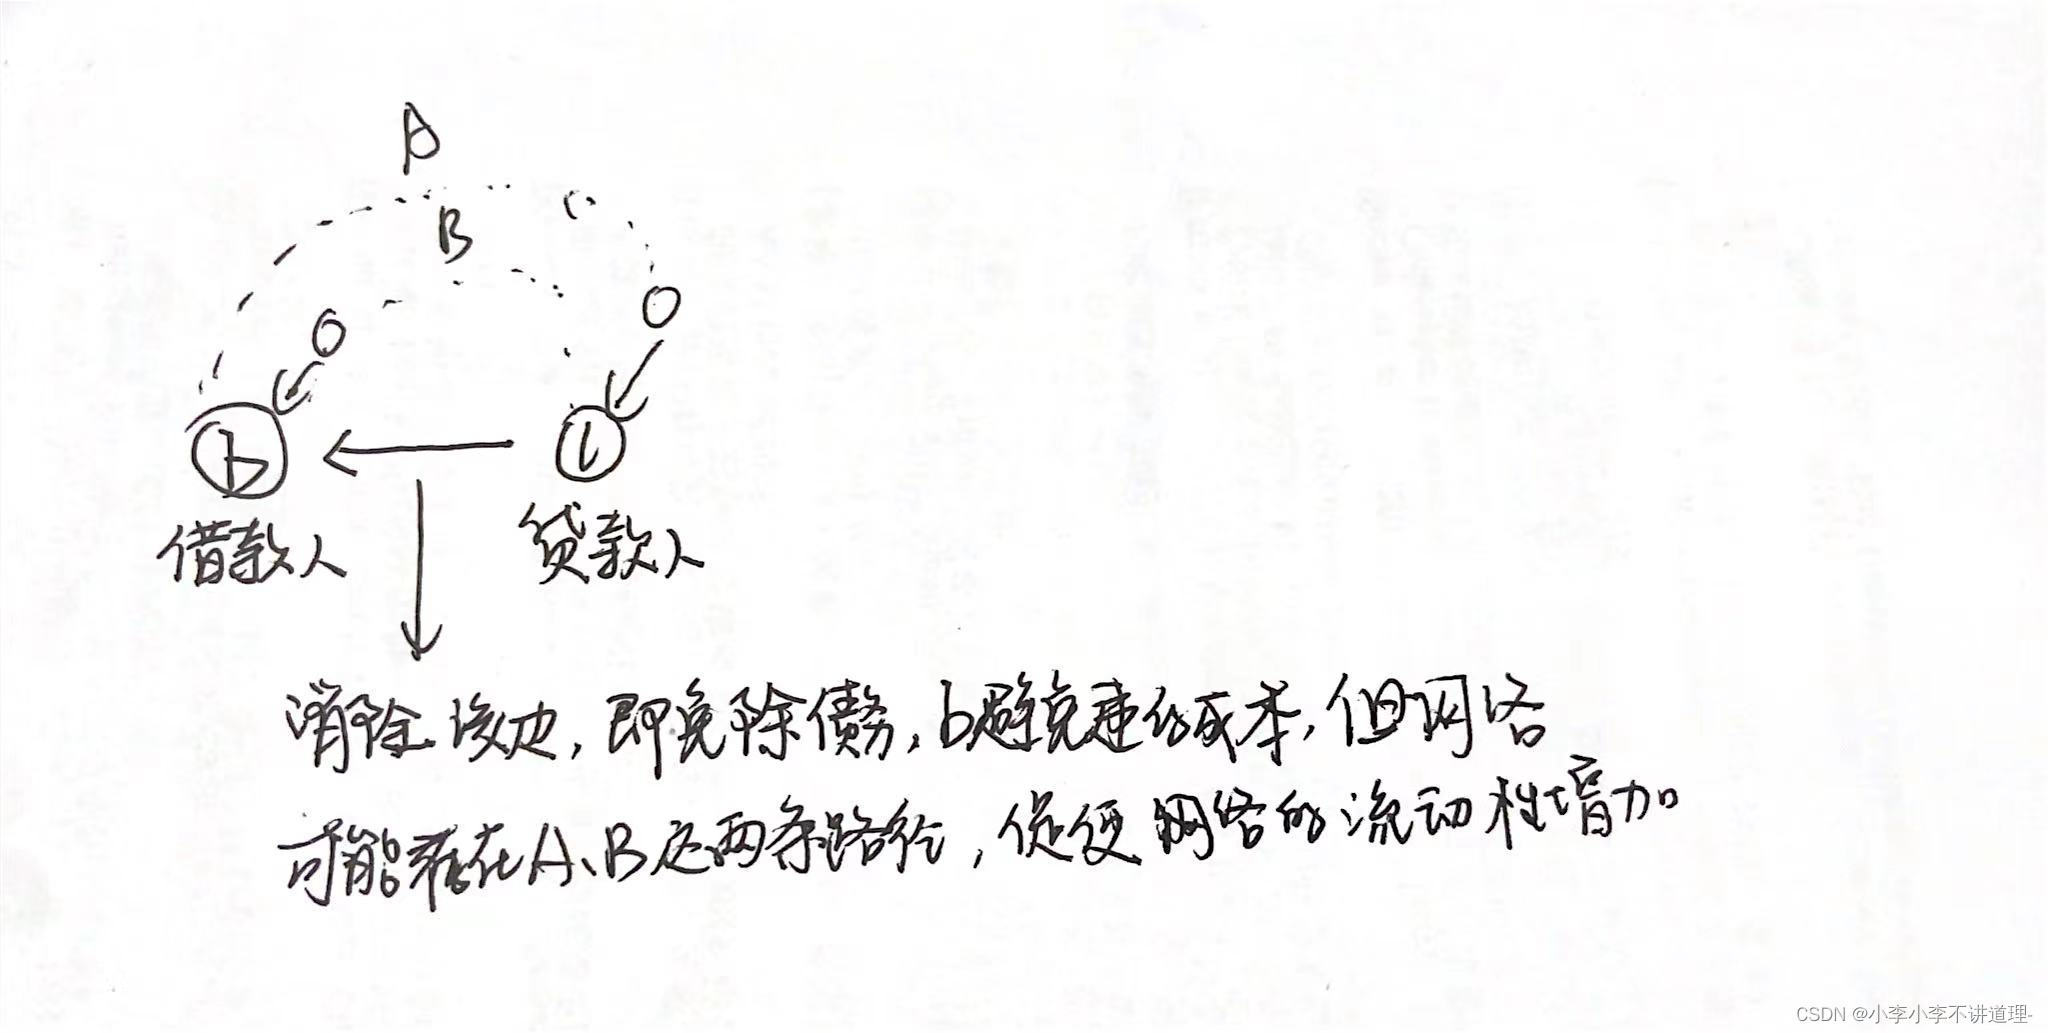 A
B
b
l
借款人
贷款人
消除该边，即免除债务，b避免违约成本，但网络
可能存在A、B这两条路径，促使网络的流动性增加
CSDN @小李小李不讲道理-